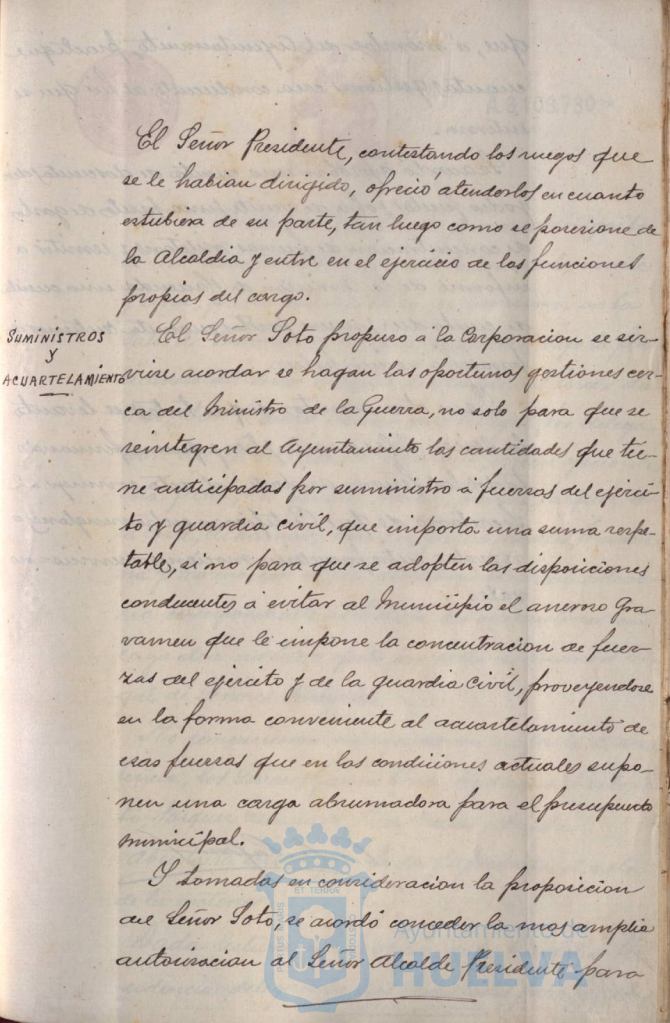 El Señor Presidente, contestando los ruegos que
se le habian dirigido, ofreció atenderlos en cuanto
estubiera de su parte, tan luego como se posesione de
la Alcaldia y entre en el ejercicio de las funciones
propias del cargo.
SUMINISTROS
Y
ACUARTELAMIENTO
El Señor Soto propuso á la Corporacion se sir-
viese acordar se hagan las oportunas gestiones cer-
ca del Ministro de la Guerra, no solo para que se
reintegren al Ayuntamiento las cantidades que tie-
ne anticipadas por suministro á fuerzas del ejérci-
to y guardia civil, que importa una suma respe-
table, si no para que se adopten las disposiciones
conducentes á evitar al Municipio el oneroso Gra-
vamen que le impone la concentracion de fuer-
zas del ejército y de la guardia Civil, proveyendose
en la forma conveniente al acuartelamiento de
esas fuerzas que en las condiciones actuales supo-
nen una carga abrumadora para el presupuesto
municipal.
Y tomadas en consideracion la proposicion
del Señor Soto, se acordó conceder la mas amplia
autorizacion al Señor Alcalde Presidente para
Ayuntamiento de
HUELVA